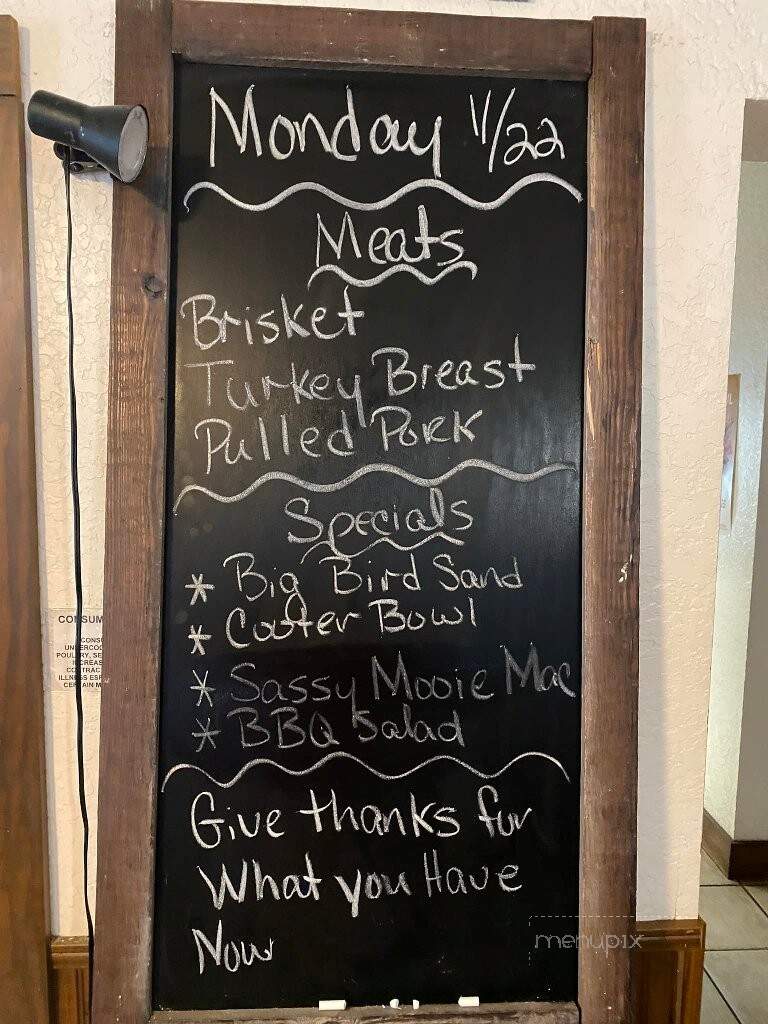 Monday 11/22
Meats
Brisket
Turkey Breast
Pulled Pork
Specials
* Big Bird Sand
* Cooter Bowl
* Sassy Mooie Mac
* BBQ Salad
Give thanks for
What you Have
Now
CONSUM
CONSU
UNDERCOO
POULTRY, SE
INCREAS
CONTRAC
ILLNESS ESP
CERTAIN M
menupix